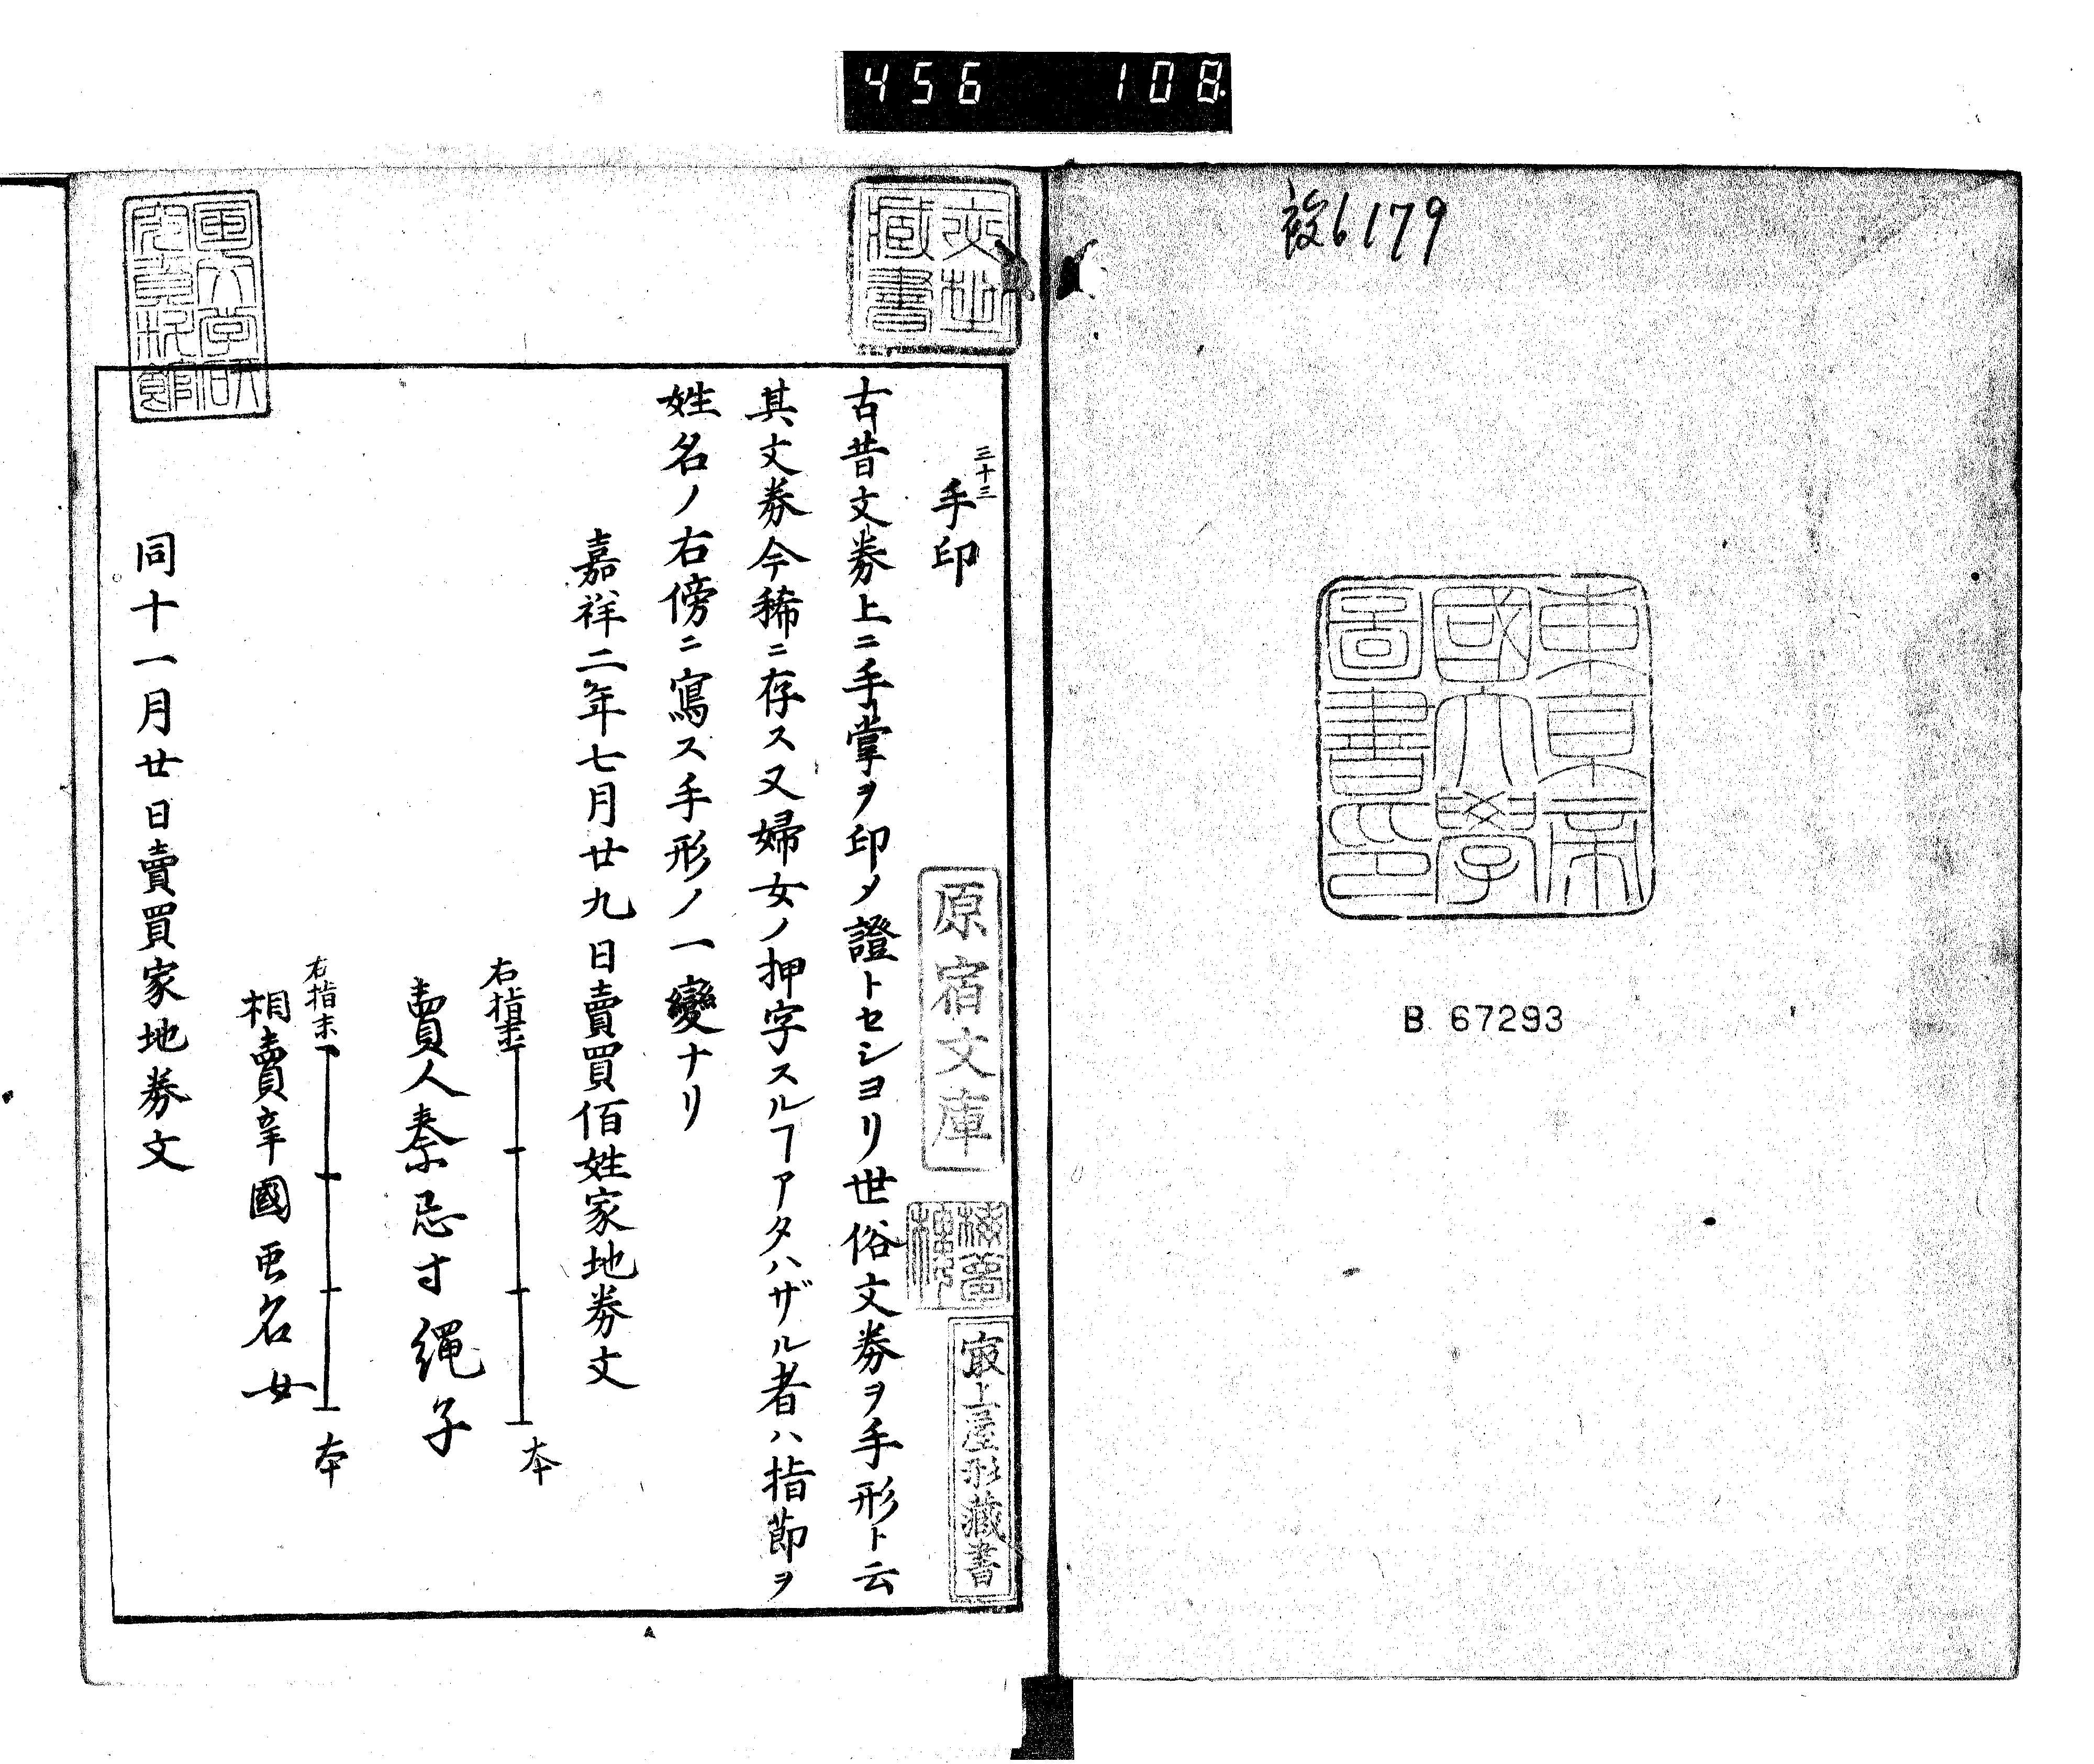 456 108
設6179
東京帝
國大學
圖書印
B 67293
藏書
三十三
手印
原宿文庫
最上屋形藏書
古昔文券上ニ手掌ヲ印メ證トセシヨリ世俗文券ヲ手形ト云
其文券今稀ニ存ス又婦女ノ押字スルヿアタハザル者ハ指節ヲ
姓名ノ右傍ニ寫ス手形ノ一變ナリ
嘉祥二年七月廿九日賣買佰姓家地券文
右指末
本
賣人秦忌寸縄子
右指末
本
相賣辛國
名女
同十一月廿日賣買家地券文